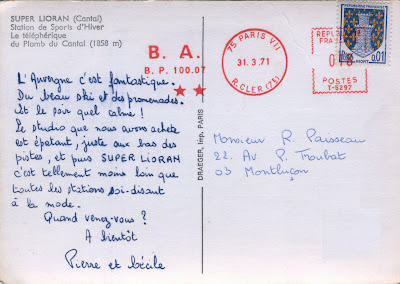 SUPER LIORAN (Cantal)
Station de Sports d'Hiver
Le téléphérique
du Plomb du Cantal (1858 m)
B. A.
B. P. 100.07
75 PARIS VII
31. 3. 71
R. CLER (7E)
REPUB
FRA
0,01
POSTES
T-5297
L'Auvergne c'est fantastique.
Du beau ski et des promenades.
Et le soir quel calme !
Le studio que nous avons acheté
est épatant, juste au bas des
pistes, et puis SUPER LIORAN
c'est tellement moins loin que
toutes les stations soi-disant
à la mode.
Quand venez-vous ?
A bientôt
Pierre et Cécile
DRAEGER, imp. PARIS
Monsieur R. Paisseau
22. Av P. Troubat
03 Montluçon